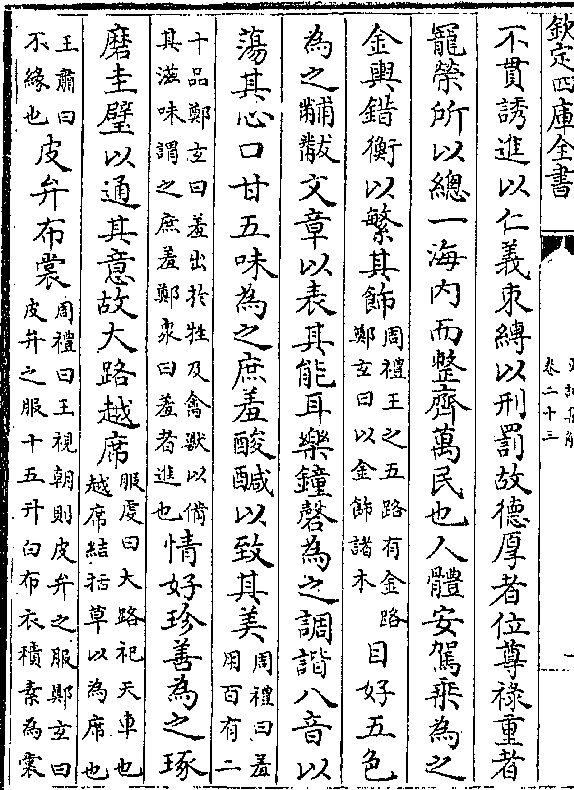 欽定四庫全書
卷二十三
不貫誘進以仁義束縛以刑罰故德厚者位尊祿重者
寵榮所以總一海内而整齊萬民也人體安駕乘為之
金輿錯衡以繁其飾周禮王之五路有金路鄭玄曰以金飾諸末目好五色
為之黼黻文章以表其能耳樂鐘磬為之調諧八音以
蕩其心口甘五味為之庶羞酸鹹以致其美周禮曰羞用百有二
十品鄭玄曰羞出於牲及禽獸以備其滋味謂之庶羞鄭衆曰羞者進也情好珍善為之琢
磨圭璧以通其意故大路越席服虔曰大路祀天車也越席結括草以為席也
王肅曰不緣也皮弁布裳周禮曰王視朝則皮弁之服鄭玄曰皮弁之服十五升白布衣積素為裳